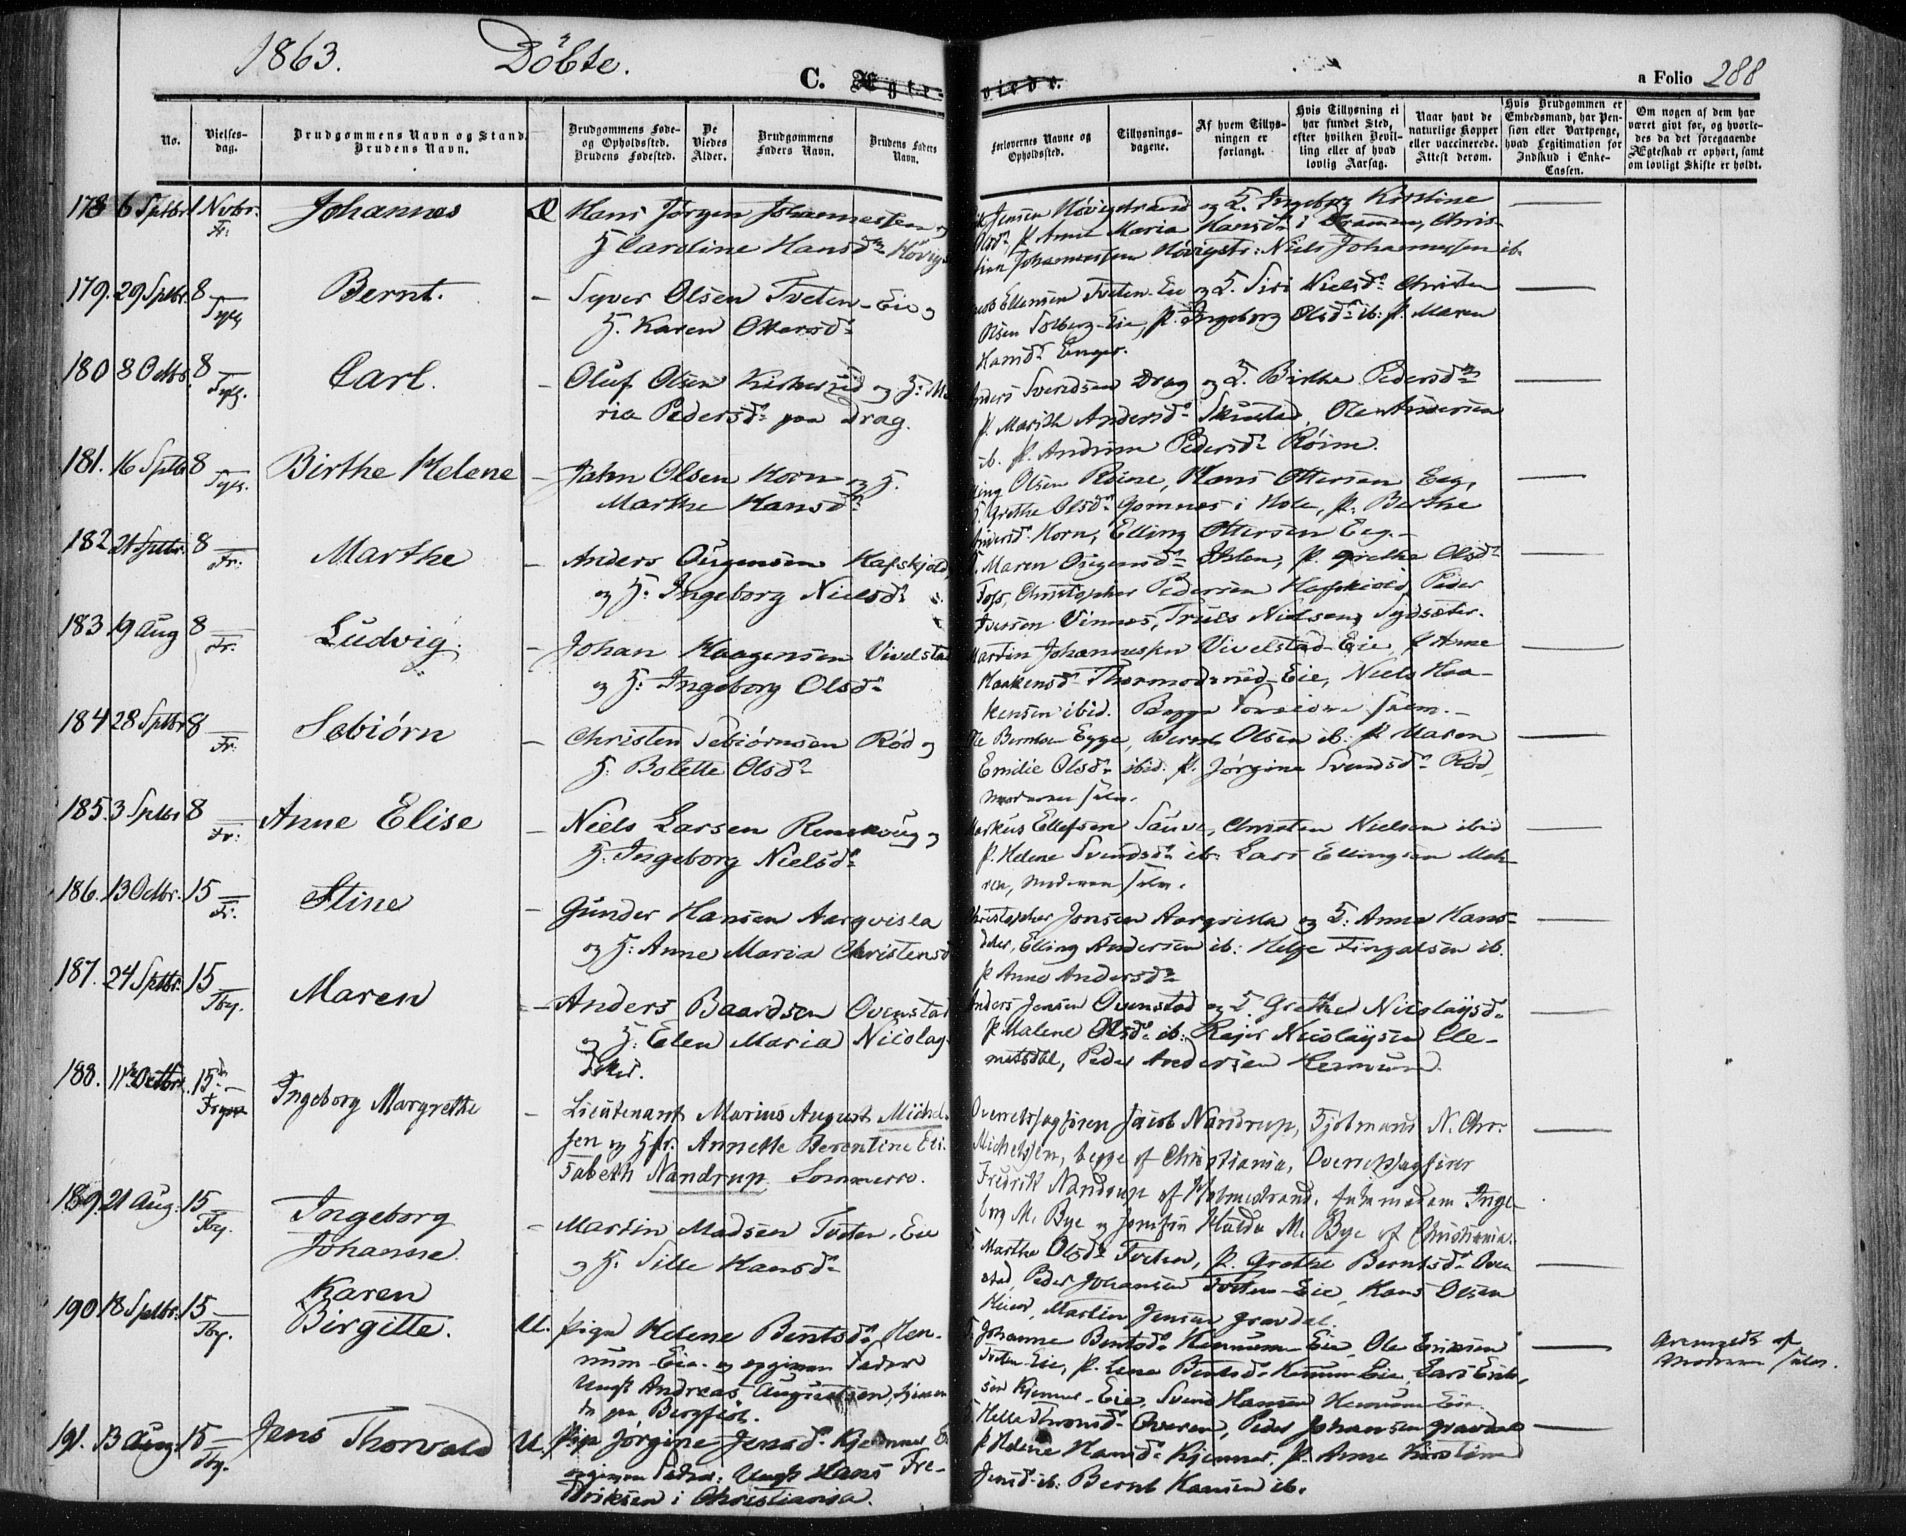 1863.
Döbte.
C. Ægte-
viede.
a Folio 288
No.
Vielses-
dag.
Brudgommens Navn og Stand.
Brudens Navn.
Brudgommens Føde-
og Opholdssted.
Brudens Fødested.
De
Viedes
Alder.
Brudgommens
Faders Navn.
Brudens Faders
Navn.
Forlovernes Navne og
Opholdssted.
Tillysnings-
dagene.
Af hvem Tillys-
ningen er
forlangt.
Hvis Tillysning ei
har fundet Sted,
efter hvilken Bevil-
ling eller af hvad
lovlig Aarsag.
Naar havt de
naturlige Kopper
eller vaccinerede.
Attest derom.
Hvis Brudgommen er
Embedsmand, har Pen-
sion eller Vartpenge,
hvad Legitimation for
Indskud i Enke-
Cassen.
Om nogen af dem har
været givt før, og hvorle-
des da det foregaaende
Ægteskab er ophørt, samt
om lovligt Skifte er holdt.
178 6 Sptbr 1 Nvbr. Fr: Johannes Hans Jørgen Johannessen og
H. Caroline Hansd. Høvig
Jensen Høvigstrand og H. Ingeborg Kirstine
Olsd. P. Anne Maria Hansd. i Dramen, Chris-
tian Johannessen Høvigstr: Niels Johannessen ib.
179. 29 Sptbr. 8 Bernt. Syver Olsen Tveten-Eie og
H. Karen Ottersd.
Ellensen Tveten-Eie og H. Siri Nielsd. Christen
Olsen Solberg-Eie, P. Ingeborg Olsd. ib: P. Maren
Hansd. Enger.
180 8 Octbr. 8 Carl. Oluf Olsen Kirkerud og H: Ma
ria Pedersd. paa Drag.
Anders Svendsen Drag og H. Birthe Pedersd.
P. Marith Andersd. Skustad, Ole Andersen
ib. P. Andrine Pedersd. Röine.
181. 16 Sptbr 8 Birthe Helene Jahn Olsen Horn og H.
Marthe Hansd.
Elling Olsen Röine, Hans Ottersen Eeg,
P. Grethe Olsd. Gomnes i Hole, P. Berthe
Andersd. Horn, Elling Ottersen Eeg.
182 21 Sptbr. 8 Fr: Marthe Anders Ougensen Hafskjold
og H. Ingeborg Nielsd.
Maren Ougensd. P. Grethe Olsd.
Foss, Christopher Pedersen Hafskiold, Peder
Iversen Vinnes, Truls Nielsen Sydsæter.
183 19 Aug 8 Fr. Ludvig. Johan Haagensen Vivelstad
og H: Ingeborg Olsd.
Martin Johannesen Vivelstad-Eie, P. Anne
Haakensd. Thormodsrud-Eie, Niels Haa-
kensen ibid. Begge Forældre selv.
184 28 Sptbr 8 Fr: Sebiörn Christen Sebiörnsen Röd og
H. Bolette Olsd.
Ole Berntsen Egge, Bernt Olsen ib. P. Maren
Emilie Olsd. ibid. P. Jørgine Svendsd. Röd,
moderen selv.
185 3 Sptbr 8 Fr: Anne Elise Niels Larsen Renskoug og
H. Ingeborg Nielsd.
Markus Ellefsen Sauve, Christen Nielsen ibid
P. Helene Svendsd. ib. Lars Ellingsen Moh-
ren, moderen selv.
186. 13 Octbr. 15 Fr. Stine Gunder Hansen Aarqvisla
og H: Anne Maria Christensd
Christopher Jonsen Aarqvisla og H: Anna Hans-
datter, Elling Andersen ib: Helge Fingalsen ib.
P Anne Andersd.
187. 24 Sptbr. 15 Tby. Maren Anders Baardsen Ovenstad
og H: Elen Maria Nicolay-
Datter.
Anders Jensen Ovenstad og H. Grethe Nicolaysd.
P. Malene Olsd. ib. Reier Nicolaysen Cle-
metsdal, Peder Andersen Hennum.
188. 11 Octbr. 15 Ingeborg Margrethe Lieutenant Marius August Michel-
sen og H. fr. Annette Berentine Eli-
sabeth Nandrup Sommerro.
Overretssagfører Jacob Nandrup, N. Chr.
Michelssen, begge af Christiania, Overretssagfører
Fredrik Nandrup af Holmestrand, Madam Inge-
borg M. Bye og Jomfru Hulda M. Bye af Christiania.
189. 21 Aug. 15 Tby. Ingeborg
Johanne. Martin Madsen Tveten-Eie
og H. Sille Hansd.
Marthe Olsd. Tveten, P. Grethe Berntsd. Oven
stad, Peder Johansen Tveten-Eie, Hans Olsen
Martin Jensen Gravdal.
190 18 Sptbr. 15 Tby. Karen
Birgitte. U. Pige Helene Bentsd. Hen-
num-Eie og opgiven Fader
Ungk Andreas Augustsen, tjenen
de paa Bergfløt.
Johanne Bentsd. Hennum-Eie, Ole Eriksen
Tveten-Eie, P. Lene Bentsd. Hennum-Eie, Lars Erik-
sen Kjenner-Eie, Svend Hansen Hennum-Eie.
Moderen selv.
191. 13 Aug. 15 Tby. Jens Thorvald U. Pige Jørgine Jensd. Kjenner
opgiven Fader: Ungk Hans Fre-
driksen i Christiania.
Helle Thronsd. Overen, Peder Johansen Gravdal
P Helene Hansd. Kjenner, P. Anne Kirstine
Jensd. ib. Bernt Hansen ib.